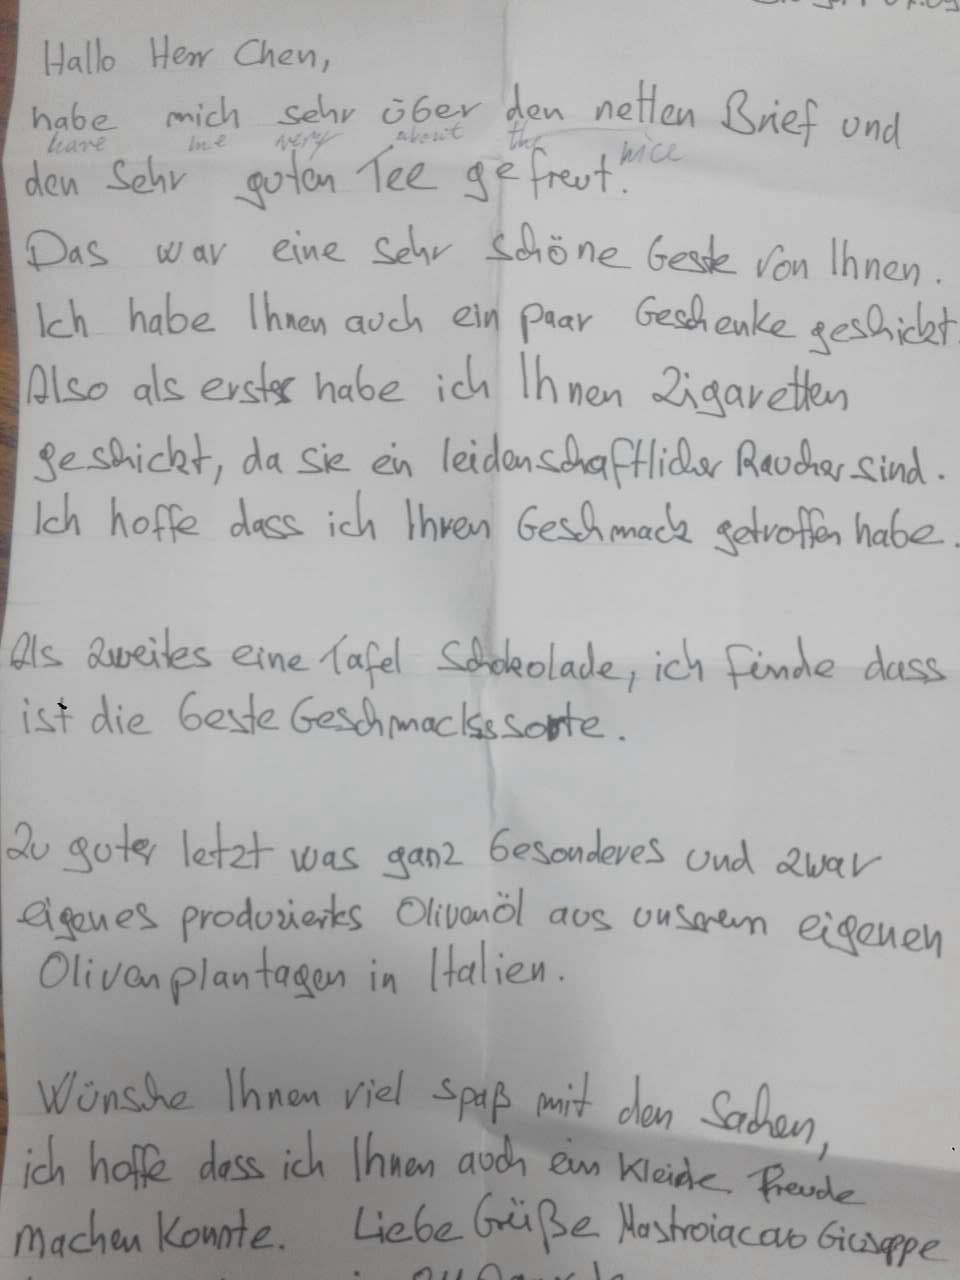 Hallo Herr Chen,
habe mich sehr über den netten Brief und
have me very about the nice
den Sehr guten Tee gefreut.
Das war eine sehr schöne Geste von Ihnen.
Ich habe Ihnen auch ein paar Geschenke geschickt.
Also als erstes habe ich Ihnen Zigaretten
geschickt, da sie ein leidenschaftlicher Raucher sind.
Ich hoffe dass ich Ihren Geschmack getroffen habe.
Als zweites eine Tafel Schokolade, ich finde dass
ist die beste Geschmackssorte.
Zu guter letzt was ganz besonderes und zwar
eigenes produziertes Olivenöl aus unserem eigenen
Olivenplantagen in Italien.
Wünsche Ihnen viel spaß mit den Sachen,
ich hoffe dass ich Ihnen auch ein kleine Freude
machen konnte. Liebe Grüße Giuseppe